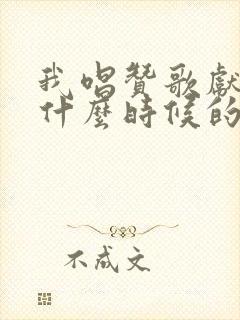 我唱贊歌獻
什麼時候的
不成文